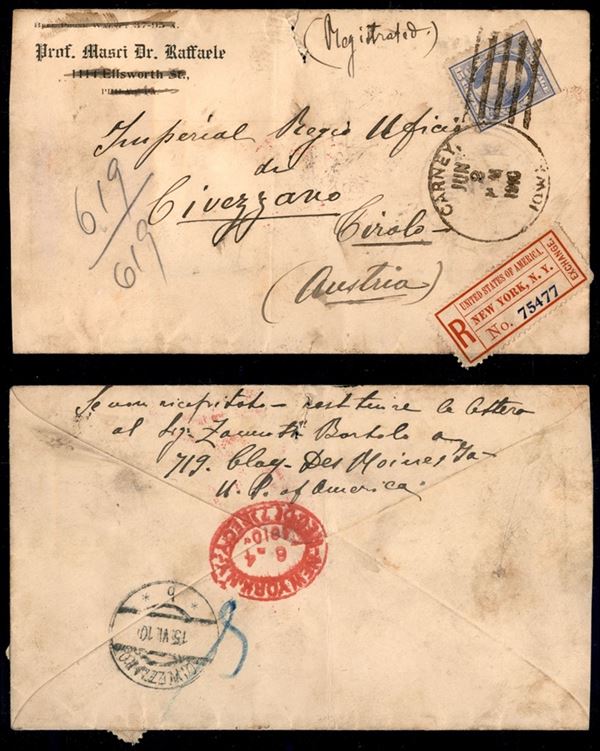 Prof. Masci Dr. Raffaele
1114 Ellsworth St.,
(Registrated.)
Imperial Regio Uficio
di
Civezzano
Tirolo
(Austria)
619/
619
CARNEY
IOWA
JUN
2
1910
UNITED STATES OF AMERICA.
NEW YORK, N. Y.
EXCHANGE.
R
No. 75477
Se non ricapitato - restituire la lettera
al Sig. Bortolo a
719. Clay - Des Moines Ia -
U. S. of America.
NEW YORK, N.Y.
6-4
1910
CIVEZZANO
15.VI.10
* b *